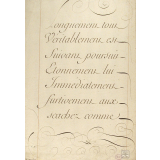 Longuement, tout
Véritablement, est
Suivant, pourvu
Etonnement, lui
Immédiatement
furtivement, aux
sachez, comme